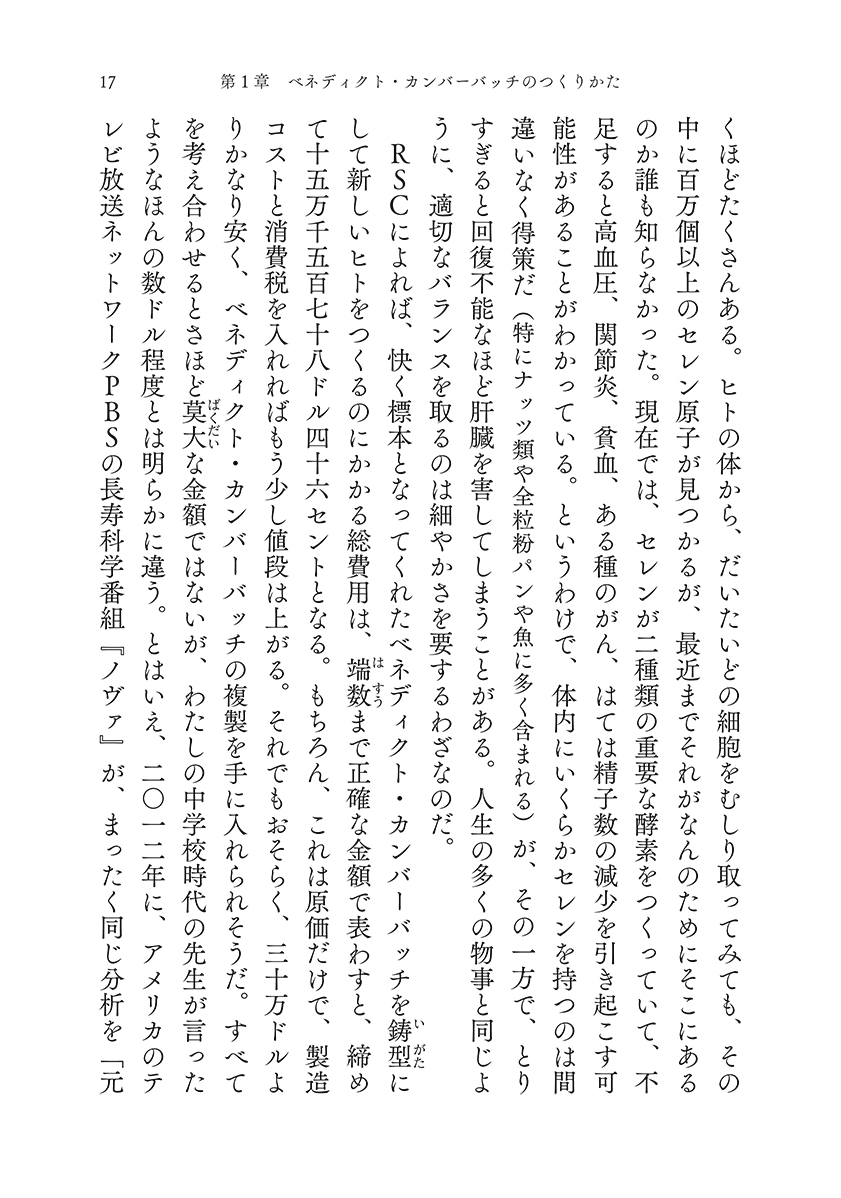 17
第1章　ベネディクト・カンバーバッチのつくりかた
くほどたくさんある。ヒトの体から、だいたいどの細胞をむしり取ってみても、その
中に百万個以上のセレン原子が見つかるが、最近までそれがなんのためにそこにある
のか誰も知らなかった。現在では、セレンが二種類の重要な酵素をつくっていて、不
足すると高血圧、関節炎、貧血、ある種のがん、はては精子数の減少を引き起こす可
能性があることがわかっている。というわけで、体内にいくらかセレンを持つのは間
違いなく得策だ（特にナッツ類や全粒粉パンや魚に多く含まれる）が、その一方で、とり
すぎると回復不能なほど肝臓を害してしまうことがある。人生の多くの物事と同じよ
うに、適切なバランスを取るのは細やかさを要するわざなのだ。
　RSCによれば、快く標本となってくれたベネディクト・カンバーバッチを鋳型いがたに
して新しいヒトをつくるのにかかる総費用は、端数はすうまで正確な金額で表わすと、締め
て十五万千五百七十八ドル四十六セントとなる。もちろん、これは原価だけで、製造
コストと消費税を入れればもう少し値段は上がる。それでもおそらく、三十万ドルよ
りかなり安く、ベネディクト・カンバーバッチの複製を手に入れられそうだ。すべて
を考え合わせるとさほど莫大ばくだいな金額ではないが、わたしの中学校時代の先生が言った
ようなほんの数ドル程度とは明らかに違う。とはいえ、二〇一二年に、アメリカのテ
レビ放送ネットワークPBSの長寿科学番組『ノヴァ』が、まったく同じ分析を「元